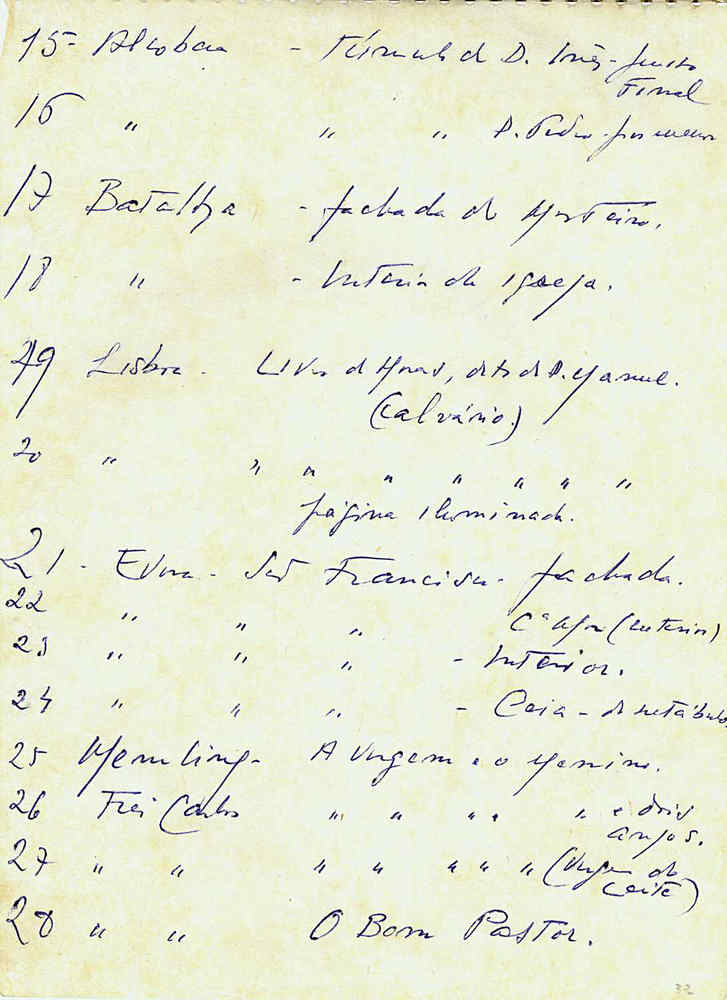 15- Alcobaça - Túmulo de D. Inês - Juizo
Final
16 " " " D. Pedro - pormenor
17 Batalha - fachada do Mosteiro.
18 " - Interior da igreja.
19 Lisboa - Livro de Horas, dito de D. Manuel.
(Calvário.)
20 " " " " " " " "
página iluminada.
21 - Evora - São Francisco - fachada.
22 " " " (interior)
23 " " " - Interior.
24 " " " - Ceia - do retábulo.
25 Memling - A Virgem e o Menino.
26 Frei Carlos " " " " e dois
anjos.
27 " " " " " " " (Virgem do
Leite)
28 " " O Bom Pastor.
32